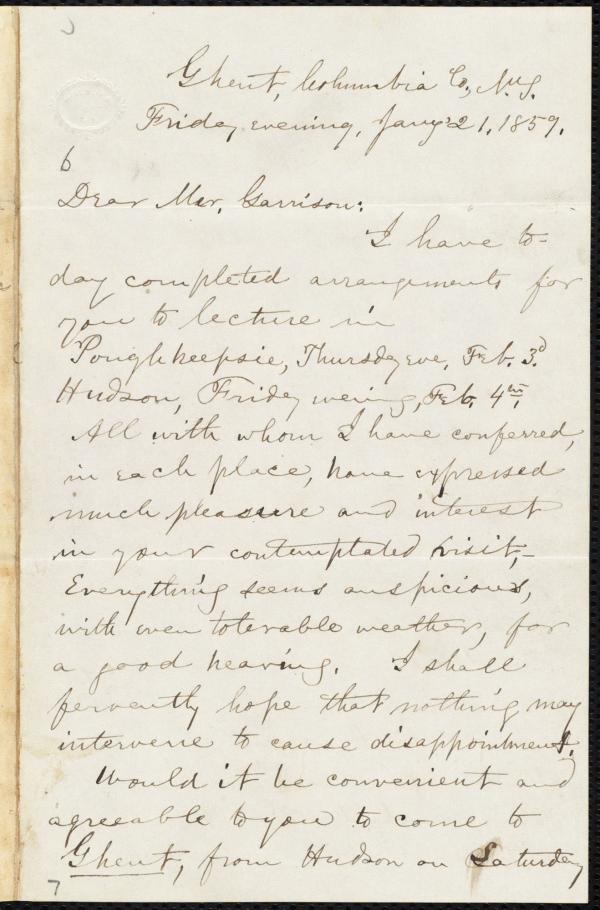 Ghent, Columbia Co., N.Y.
Friday evening, Jany 21, 1859.
6
Dear Mr. Garrison:
I have to-
day completed arrangements for
you to lecture in
Poughkeepsie, Thursday eve, Feb. 3d.
Hudson, Friday evening, Feb. 4th.
All with whom I have conferred,
in each place, have expressed
much pleasure and interest
in your contemplated visit,-
Everything seems auspicious,
with even tolerable weather, for
a good hearing. I shall
fervently hope that nothing may
intervene to cause disappointment.
Would it be convenient and
agreeable to you to come to
Ghent, from Hudson on Saturday
7